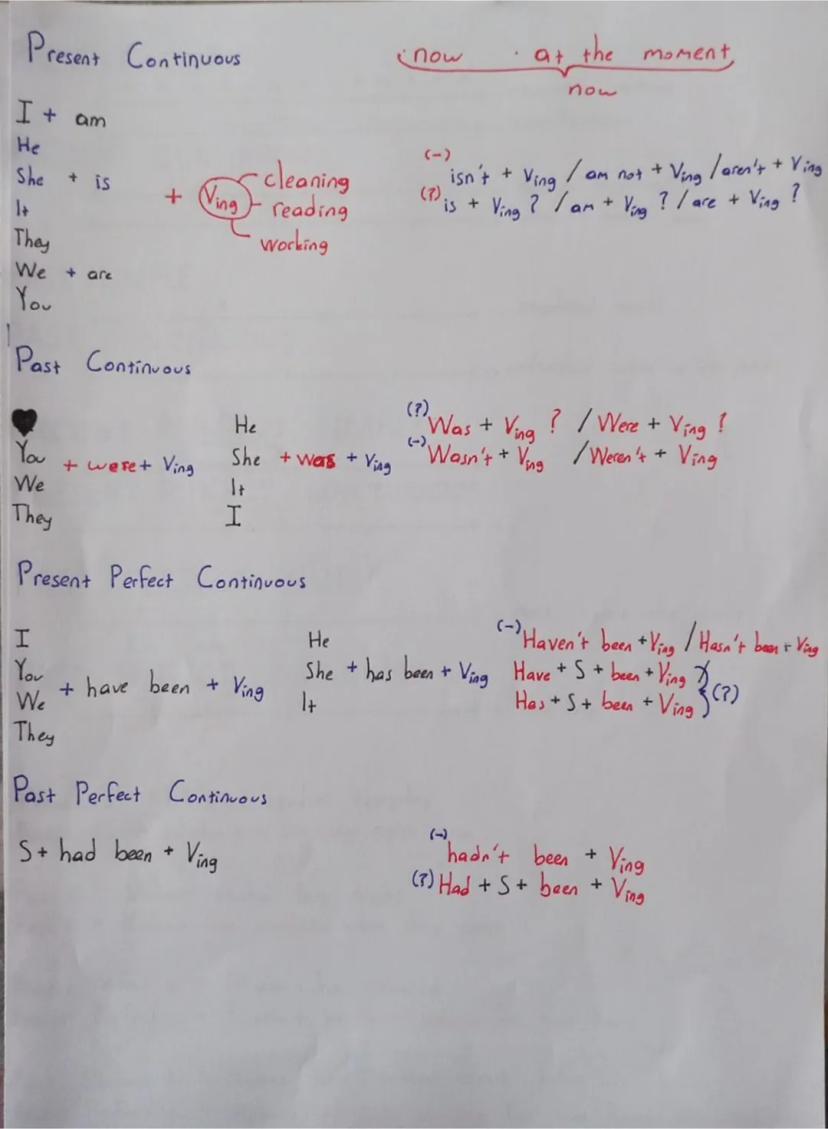 Present Continuous
now · at the moment
now
I + am
He
She + is
It
They
We + are
You
+ Ving
cleaning
reading
working
(-) isn't + Ving / am not + Ving / aren't + Ving
(?) is + Ving ? / am + Ving ? / are + Ving ?
Past Continuous
You
We
They
+ were + Ving
He
She + was + Ving
It
I
(?) Was + Ving ? / Were + Ving ?
(-) Wasn't + Ving / Weren't + Ving
Present Perfect Continuous
I
You
We
They
+ have been + Ving
He
She + has been + Ving
It
(-) Haven't been + Ving / Hasn't been + Ving
Have + S + been + Ving
Has + S + been + Ving
(?)
Past Perfect Continuous
S + had been + Ving
(-) hadn't been + Ving
(?) Had + S + been + Ving